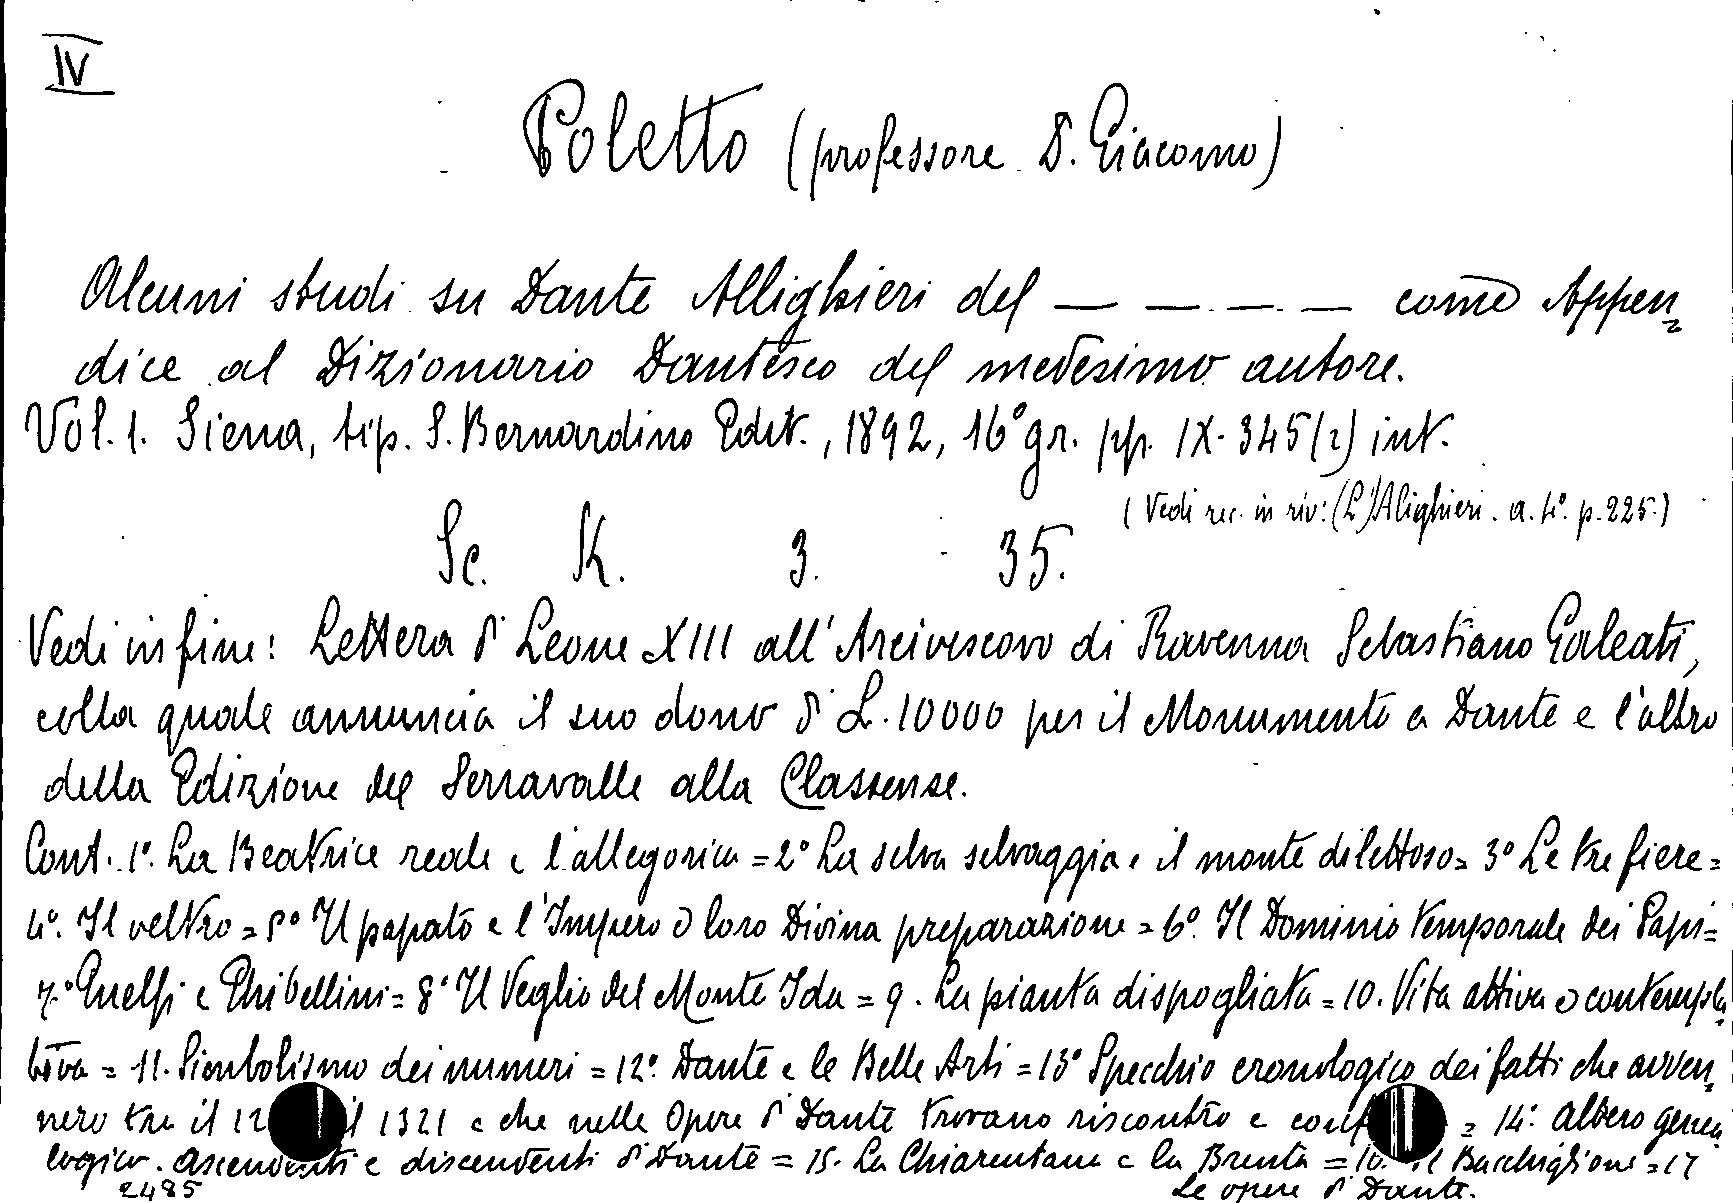 IV
Poletto (professore D. Giacomo)
Alcuni studi su Dante Allighieri del — — — — come Appen=
dice al Dizionario Dantesco del medesimo autore.
Vol. 1. Siena, tip. S. Bernardino Edit., 1892, 16° gr. pp. IX-345 (2) int.
(Vedi rec. in riv: (L')Alighieri. a. 4° p. 225.)
Sc. K. 3. 35.
Vedi in fine: Lettera di Leone XIII all'Arcivescovo di Ravenna Sebastiano Galeati,
colla quale annuncia il suo dono di L. 10000 per il Monumento a Dante e l'altro
della Edizione del Serravalle alla Classense.
Cont. 1°. La Beatrice reale e l'allegorica = 2° La selva selvaggia e il monte dilettoso = 3° Le tre fiere =
4°. Il veltro = 5° Il papato e l'Impero e loro Divina preparazione = 6°. Il Dominio temporale dei Papi =
7.° Guelfi e Ghibellini = 8° Il Veglio del Monte Ida = 9. La pianta dispogliata = 10. Vita attiva e contempla=
tiva = 11. Simbolismo dei numeri = 12°. Dante e le Belle Arti = 13° Specchio cronologico dei fatti che avven=
nero tra il 12 il 1321 e che nelle Opere di Dante trovano riscontro e = 14° Albero genea=
logico. ascendenti e discendenti di Dante = 15. La Chiarentana e la Brenta = 16. Il Bacchiglione = 17
2485 Le opere di Dante.